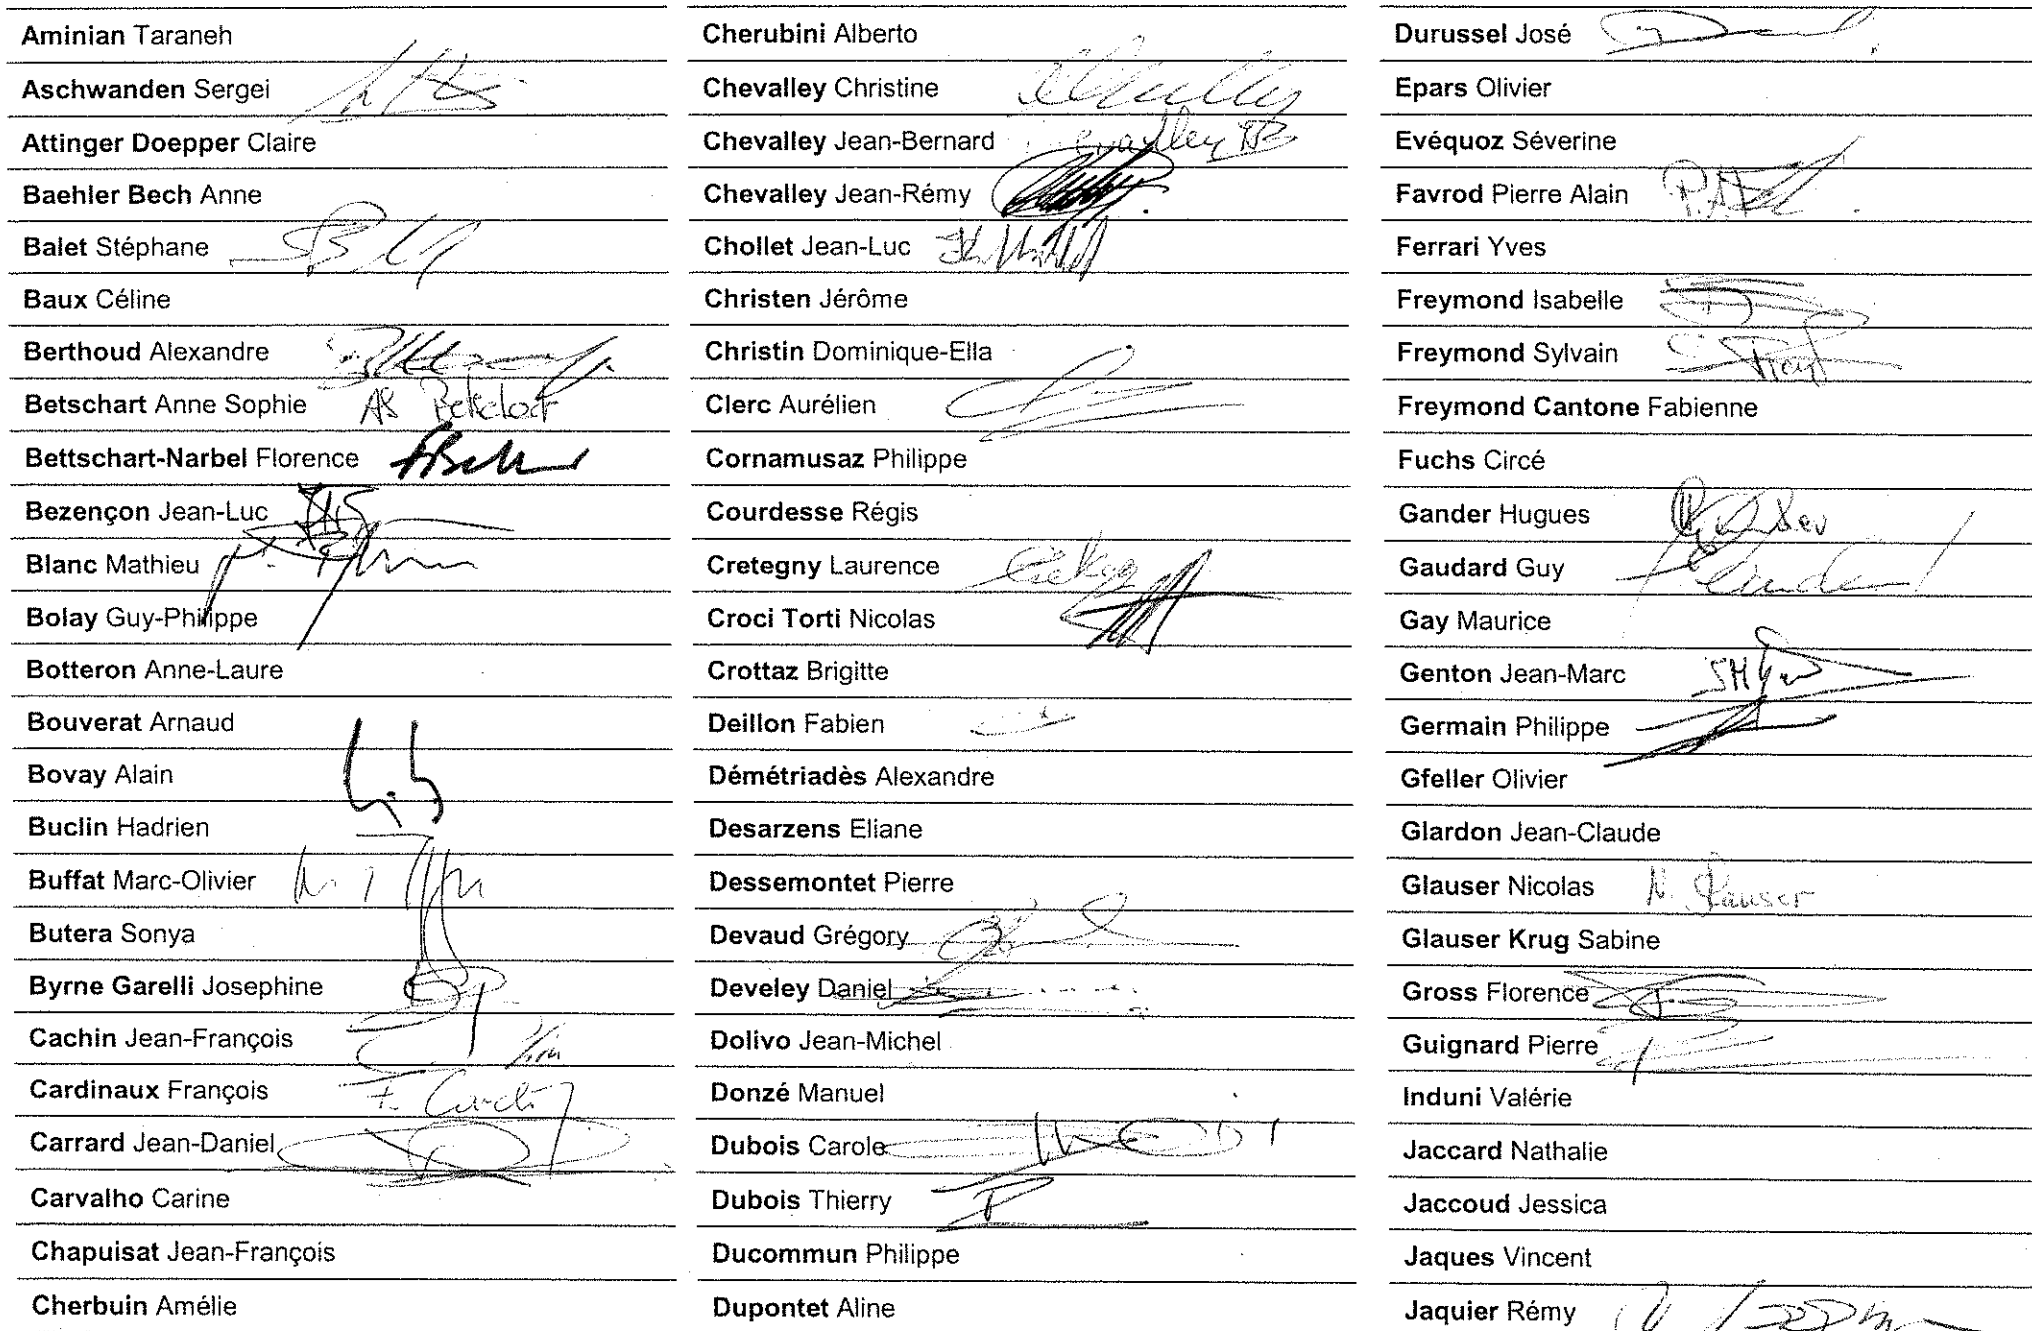 Aminian Taraneh
Aschwanden Sergei
Attinger Doepper Claire
Baehler Bech Anne
Balet Stéphane
Baux Céline
Berthoud Alexandre
Betschart Anne Sophie AS Betschart
Bettschart-Narbel Florence
Bezençon Jean-Luc
Blanc Mathieu
Bolay Guy-Philippe
Botteron Anne-Laure
Bouverat Arnaud
Bovay Alain
Buclin Hadrien
Buffat Marc-Olivier
Butera Sonya
Byrne Garelli Josephine
Cachin Jean-François
Cardinaux François
Carrard Jean-Daniel
Carvalho Carine
Chapuisat Jean-François
Cherbuin Amélie
Cherubini Alberto
Chevalley Christine
Chevalley Jean-Bernard
Chevalley Jean-Rémy
Chollet Jean-Luc
Christen Jérôme
Christin Dominique-Ella
Clerc Aurélien
Cornamusaz Philippe
Courdesse Régis
Cretegny Laurence
Croci Torti Nicolas
Crottaz Brigitte
Deillon Fabien
Démétriadès Alexandre
Desarzens Eliane
Dessemontet Pierre
Devaud Grégory
Develey Daniel
Dolivo Jean-Michel
Donzé Manuel
Dubois Carole
Dubois Thierry
Ducommun Philippe
Dupontet Aline
Durussel José
Epars Olivier
Evéquoz Séverine
Favrod Pierre Alain
Ferrari Yves
Freymond Isabelle
Freymond Sylvain
Freymond Cantone Fabienne
Fuchs Circé
Gander Hugues
Gaudard Guy
Gay Maurice
Genton Jean-Marc
Germain Philippe
Gfeller Olivier
Glardon Jean-Claude
Glauser Nicolas N. Glauser
Glauser Krug Sabine
Gross Florence
Guignard Pierre
Induni Valérie
Jaccard Nathalie
Jaccoud Jessica
Jaques Vincent
Jaquier Rémy